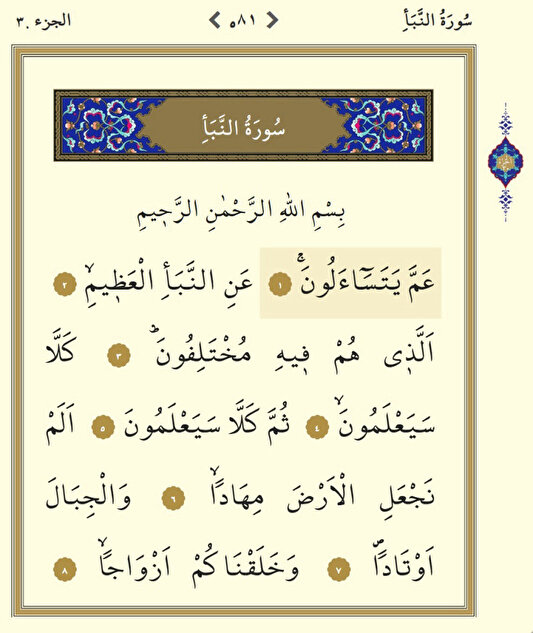 سُورَةُ النَّبَأِ ٥٨١ الجزء ٣٠
سُورَةُ النَّبَأِ
بِسْمِ اللهِ الرَّحْمٰنِ الرَّحٖيمِ
عَمَّ يَتَسَٓاءَلُونَۚ ١ عَنِ النَّبَأِ الْعَظٖيمِۙ ٢
اَلَّذٖى هُمْ فٖيهِ مُخْتَلِفُونَؕ ٣ كَلَّا
سَيَعْلَمُونَۙ ٤ ثُمَّ كَلَّا سَيَعْلَمُونَ ٥ اَلَمْ
نَجْعَلِ الْاَرْضَ مِهَادًاۙ ٦ وَالْجِبَالَ
اَوْتَادًاࣕ ٧ وَخَلَقْنَاكُمْ اَزْوَاجًاۙ ٨